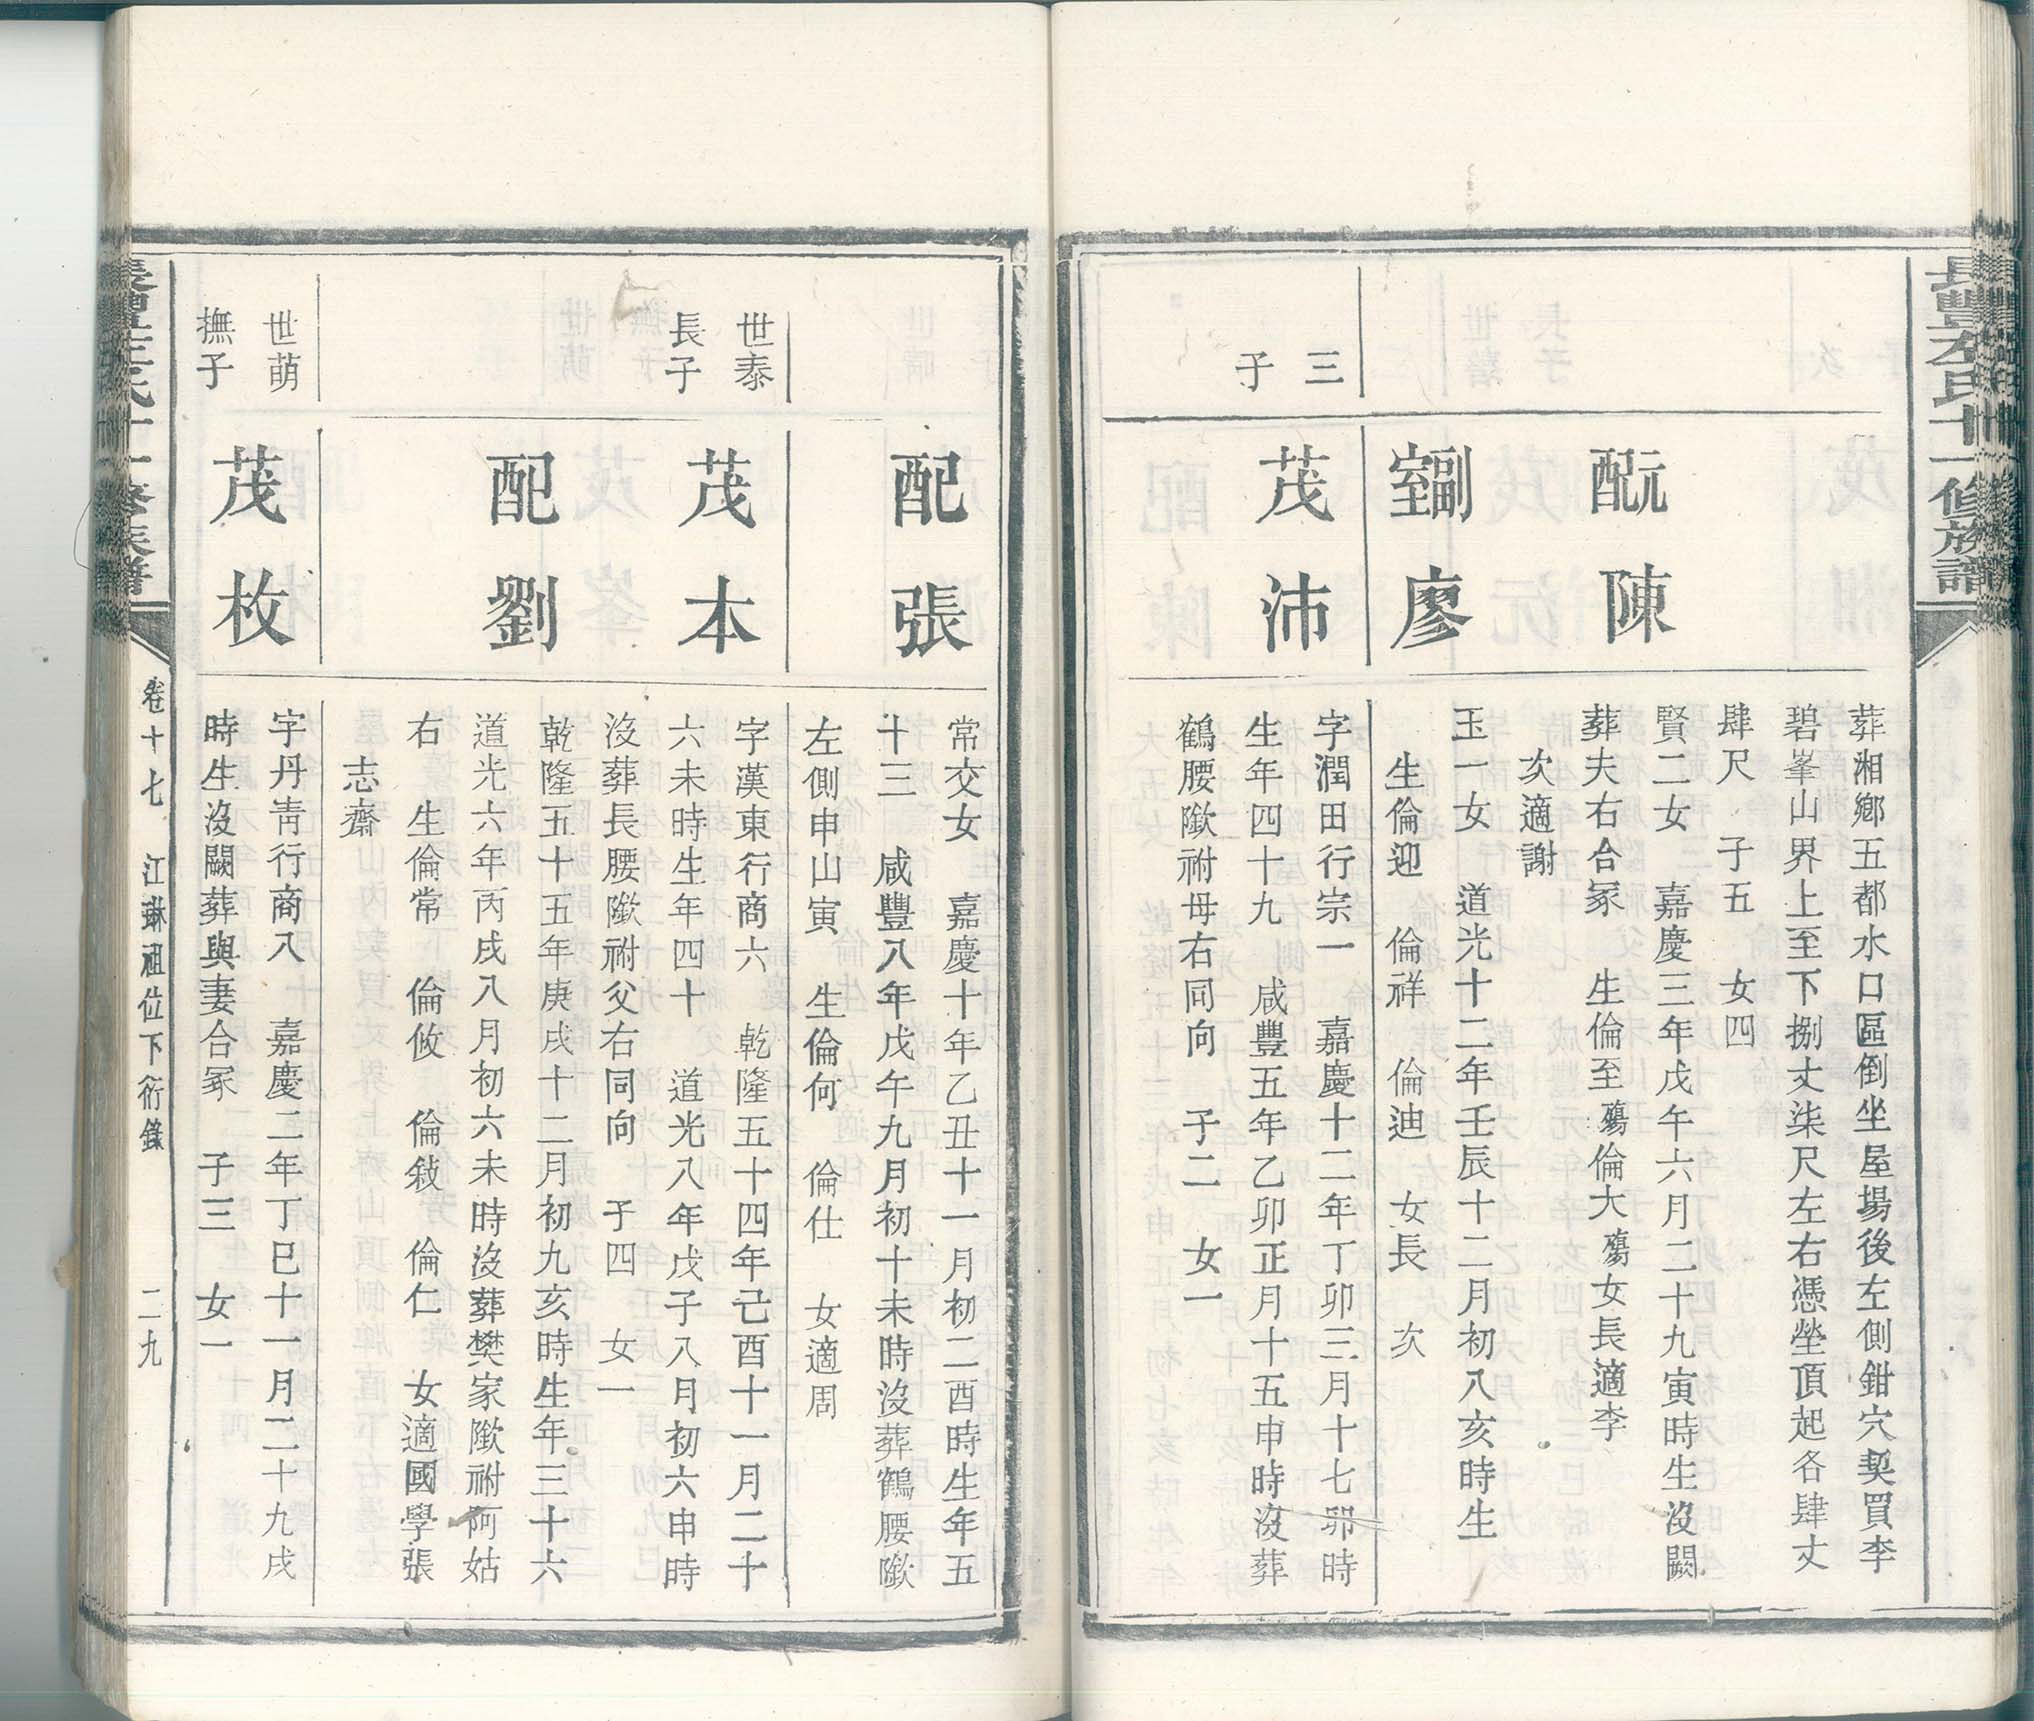 葬湘鄉五都水口區倒坐屋場後左側鉗穴契買李
碧峯山界上至下捌丈柒尺左右憑塋頂起各肆丈
肆尺　子五　女四
元配陳
賢二女　嘉慶三年戊午六月二十九寅時生沒闕
葬夫右合冢　生倫至殤倫大殤女長適李
次適謝
副室廖
玉一女　道光十二年壬辰十二月初八亥時生
生倫迎　倫祥　倫迪　女長　次
三子
茂沛
字潤田行宗一　嘉慶十二年丁卯三月十七卯時
生年四十九　咸豐五年乙卯正月十五申時沒葬
鶴腰㘭祔母右同向　子二　女一
配張
常交女　嘉慶十年乙丑十一月初二酉時生年五
十三　咸豐八年戊午九月初十未時沒葬鶴腰㘭
左側申山寅　生倫何　倫仕　女適周
世泰長子
茂本
字漢東行商六　乾隆五十四年己酉十一月二十
六未時生年四十　道光八年戊子八月初六申時
沒葬長腰㘭祔父右同向　子四　女一
配劉
乾隆五十五年庚戌十二月初九亥時生年三十六
道光六年丙戌八月初六未時沒葬樊家㘭祔阿姑
右　生倫常　倫攸　倫敍　倫仁　女適國學張
志齋
世萌撫子
茂枚
字丹靑行商八　嘉慶二年丁巳十一月二十九戌
時生沒闕葬與妻合冢　子三　女一
卷十七　江琳祖位下衍錄　二九